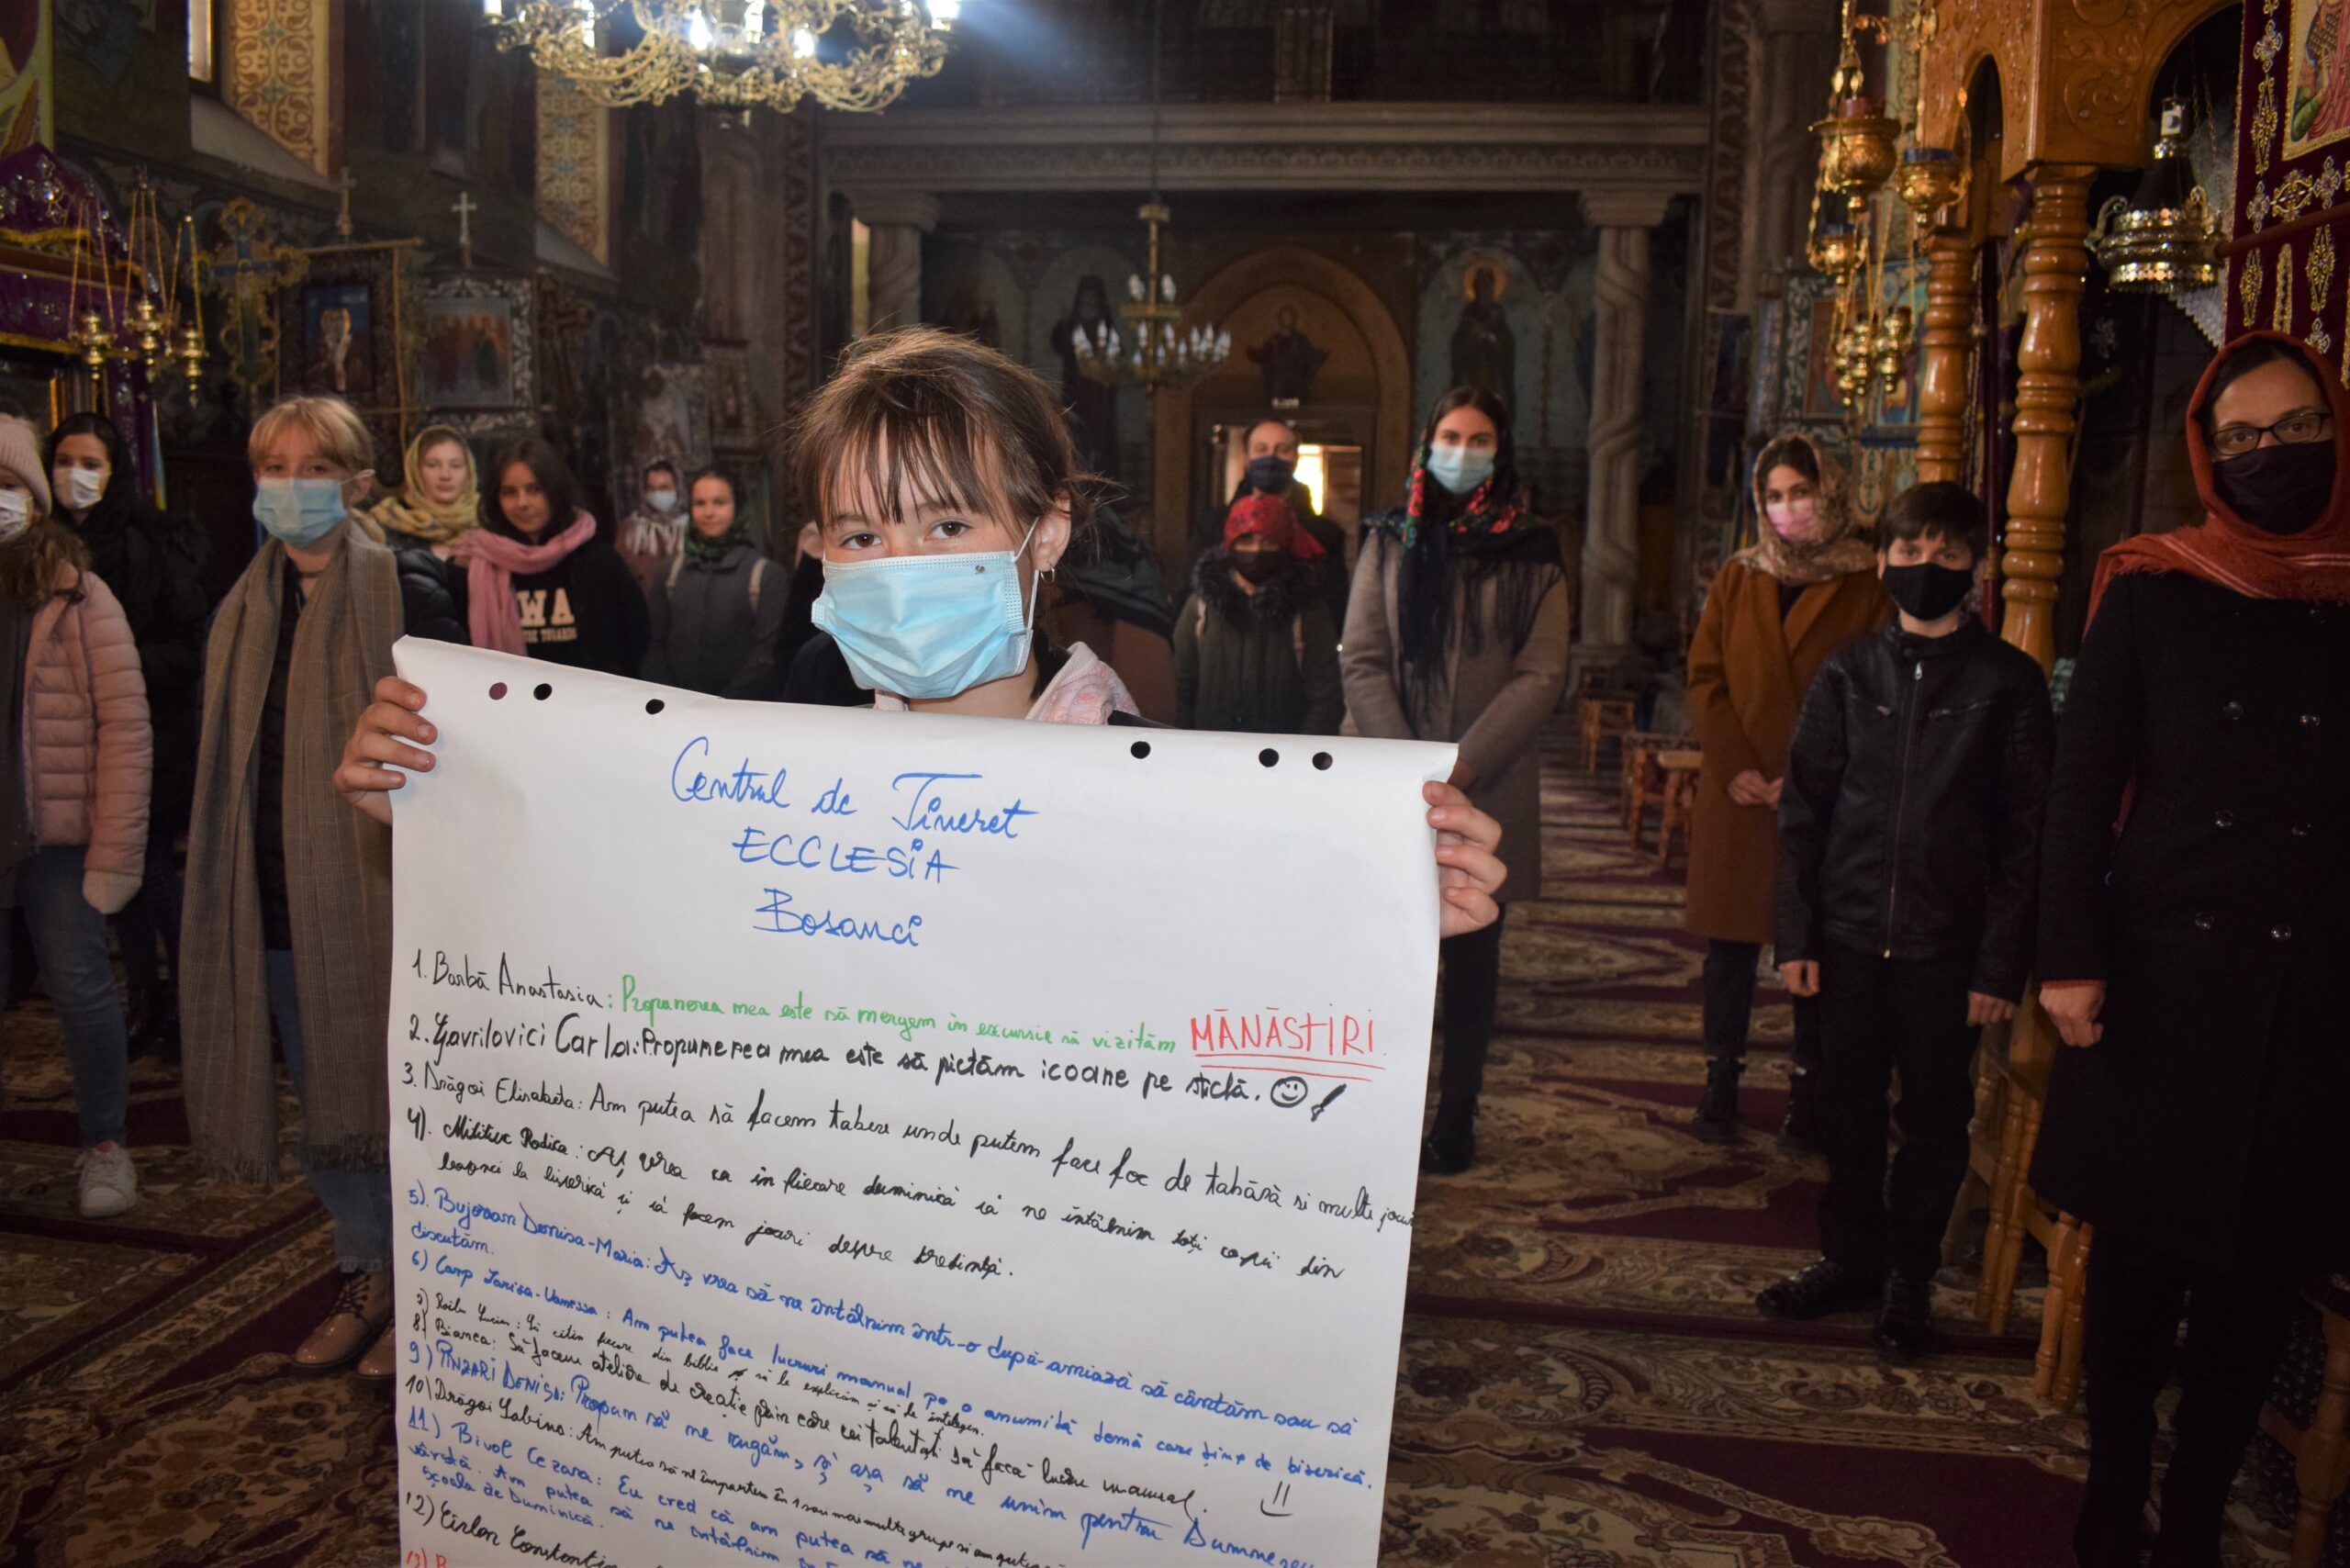 WA
Centrul de Tineret
ECCLESiA
Bosanci
1. Barbă Anastasia: Propunerea mea este să mergem în excursie să vizităm MĂNĂSTIRI.
2. Gavrilovici Carla: Propunerea mea este să pictăm icoane pe sticlă.
3. Drăgoi Elisabeta: Am putea să facem tabere unde putem face foc de tabără si multe jocuri
4). Mititiuc Rodica: Aș vrea ca în fiecare duminică să ne întâlnim toți copii din
bosanci la biserică și să facem jocuri despre credință.
5). Bujorean Denisa-Maria: Aș vrea să ne întâlnim într-o după-amiază să cântăm sau să
discutăm.
6) Carp Larisa-Vanessa: Am putea face lucruri manual pe o anumită temă care țin de biserică.
7) Lucian: Să citim fiecare din biblie și să le explicăm și să le înțelegem.
8) Bianca: Să facem ateliere de creație prin care cei talentați să facă lucru manual.
9) PÎNZARI DENISA: Propun să ne rugăm, și așa să ne unim pentru Dumnezeu
10) Drăgoi Sabina: Am putea să ne împartim în 1 sau mai multe grupe si am putea
11) Bivol Cezara: Eu cred că am putea să ne
vârstă. Am putea să ne întâlnim în
Școala de Duminică.
12) Constantin
13) B